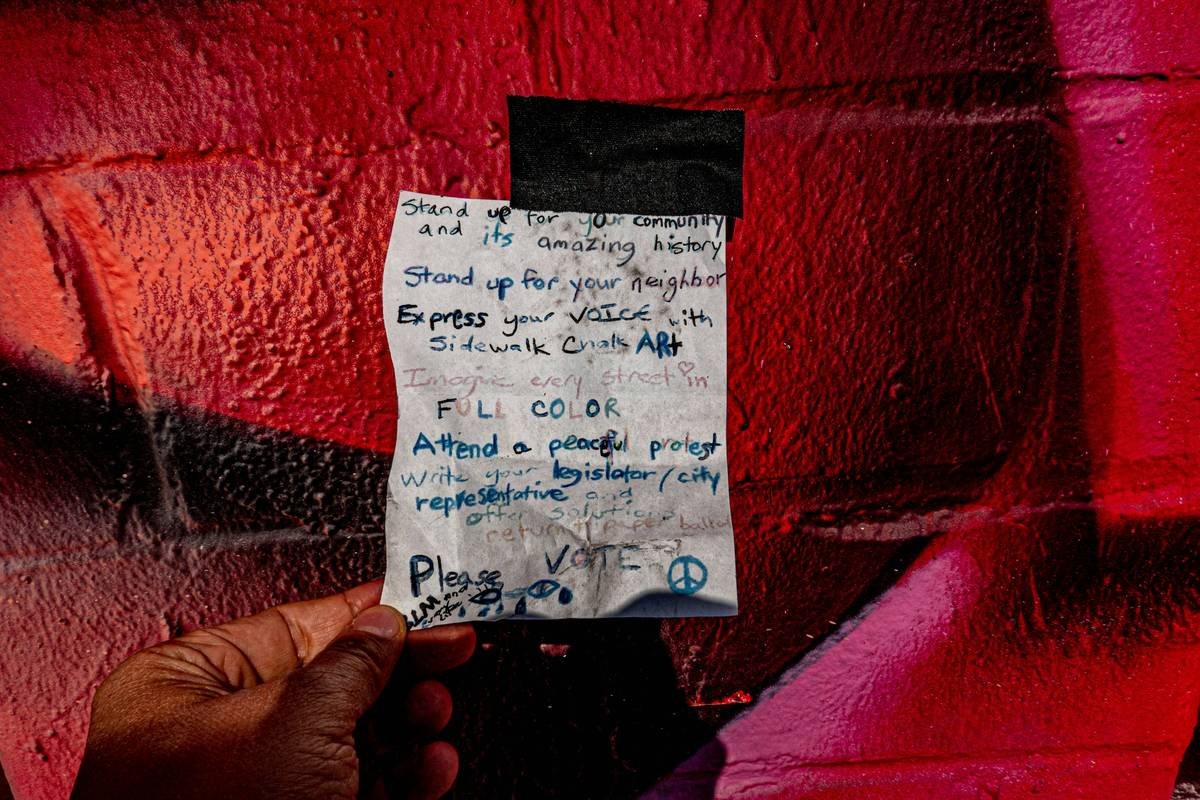 Stand up for your community
and its amazing history
Stand up for your neighbor
Express your VOICE with
Sidewalk Chalk ARt
Imagine every street in
FULL COLOR
Attend a peaceful protest
Write your legislator/city
representative and
offer solutions
return paper ballot
VOTE
Please
BLM and